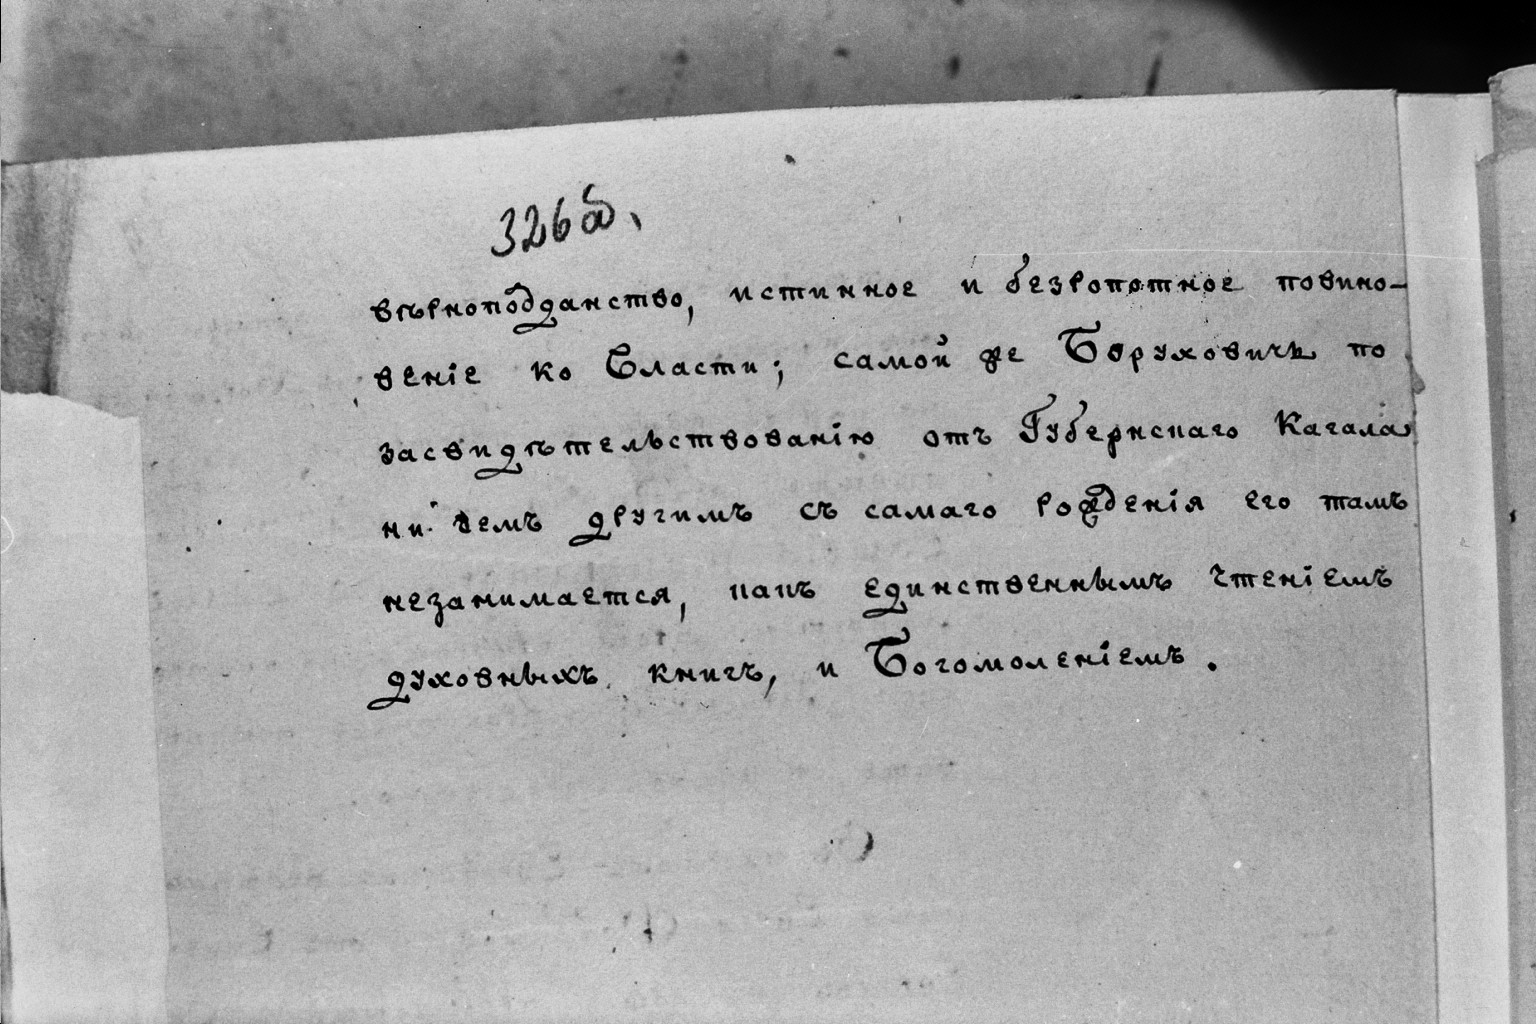 326 об.
вѣрноподданство, истинное и безропотное повино-
веніе ко Власти; самой же Боруховичь по
засвидѣтельствованію отъ Губернскаго Кагала
ни чемъ другимъ съ самаго рожденія его тамъ
незанимается, какъ единственнымъ чтеніемъ
духовныхъ книгъ, и Богомоленіемъ.